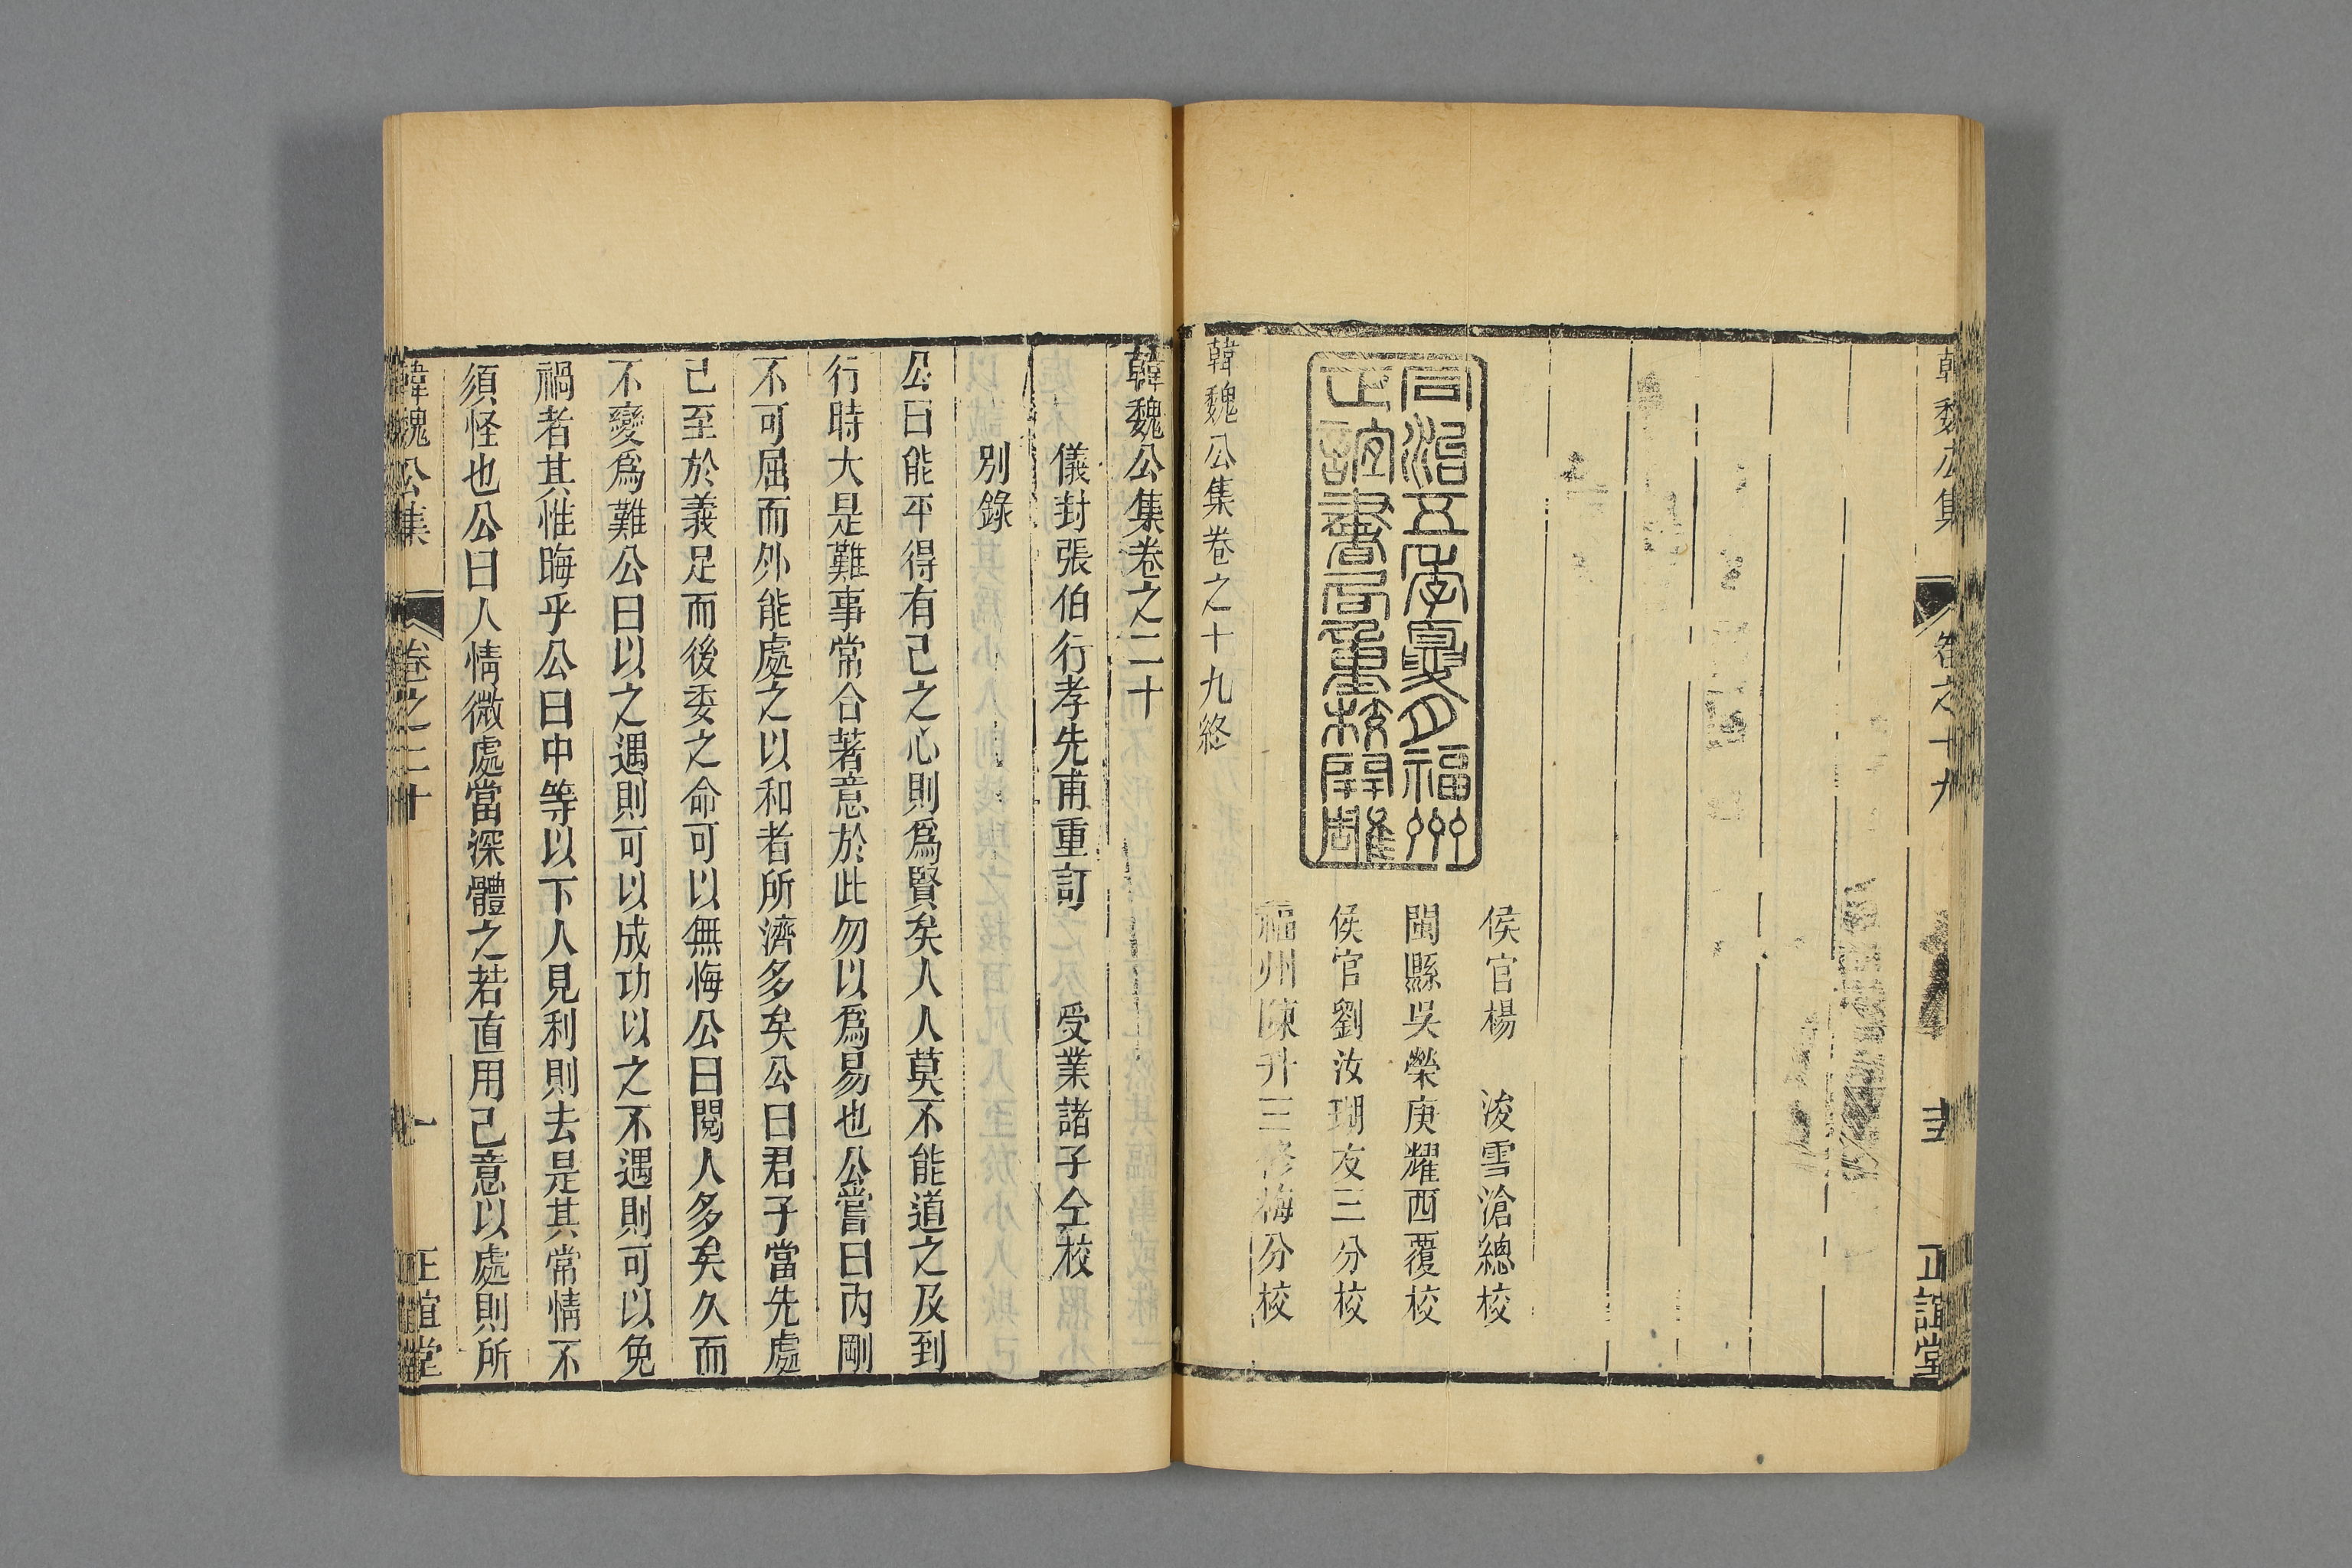 韓魏公集
卷之十九
正誼堂
侯官楊　浚雪滄總校
閩縣吳榮庚耀西覆校
侯官劉汝瑚友三分校
福州陳升三修梅分校
同治五年夏月福州
正誼書局重校開雕
韓魏公集卷之十九終
韓魏公集卷之二十
儀封張伯行孝先甫重訂　受業諸子仝校
別錄
公曰能平得有己之心則爲賢矣人人莫不能道之及到
行時大是難事常合著意於此勿以爲易也公嘗曰內剛
不可屈而外能處之以和者所濟多矣公曰君子當先處
己至於義足而後委之命可以無悔公曰閱人多矣久而
不變爲難公曰以之遇則可以成功以之不遇則可以免
禍者其惟晦乎公曰中等以下人見利則去是其常情不
須怪也公曰人情微處當深體之若直用己意以處則所
韓魏公集
卷之二十
一
正誼堂